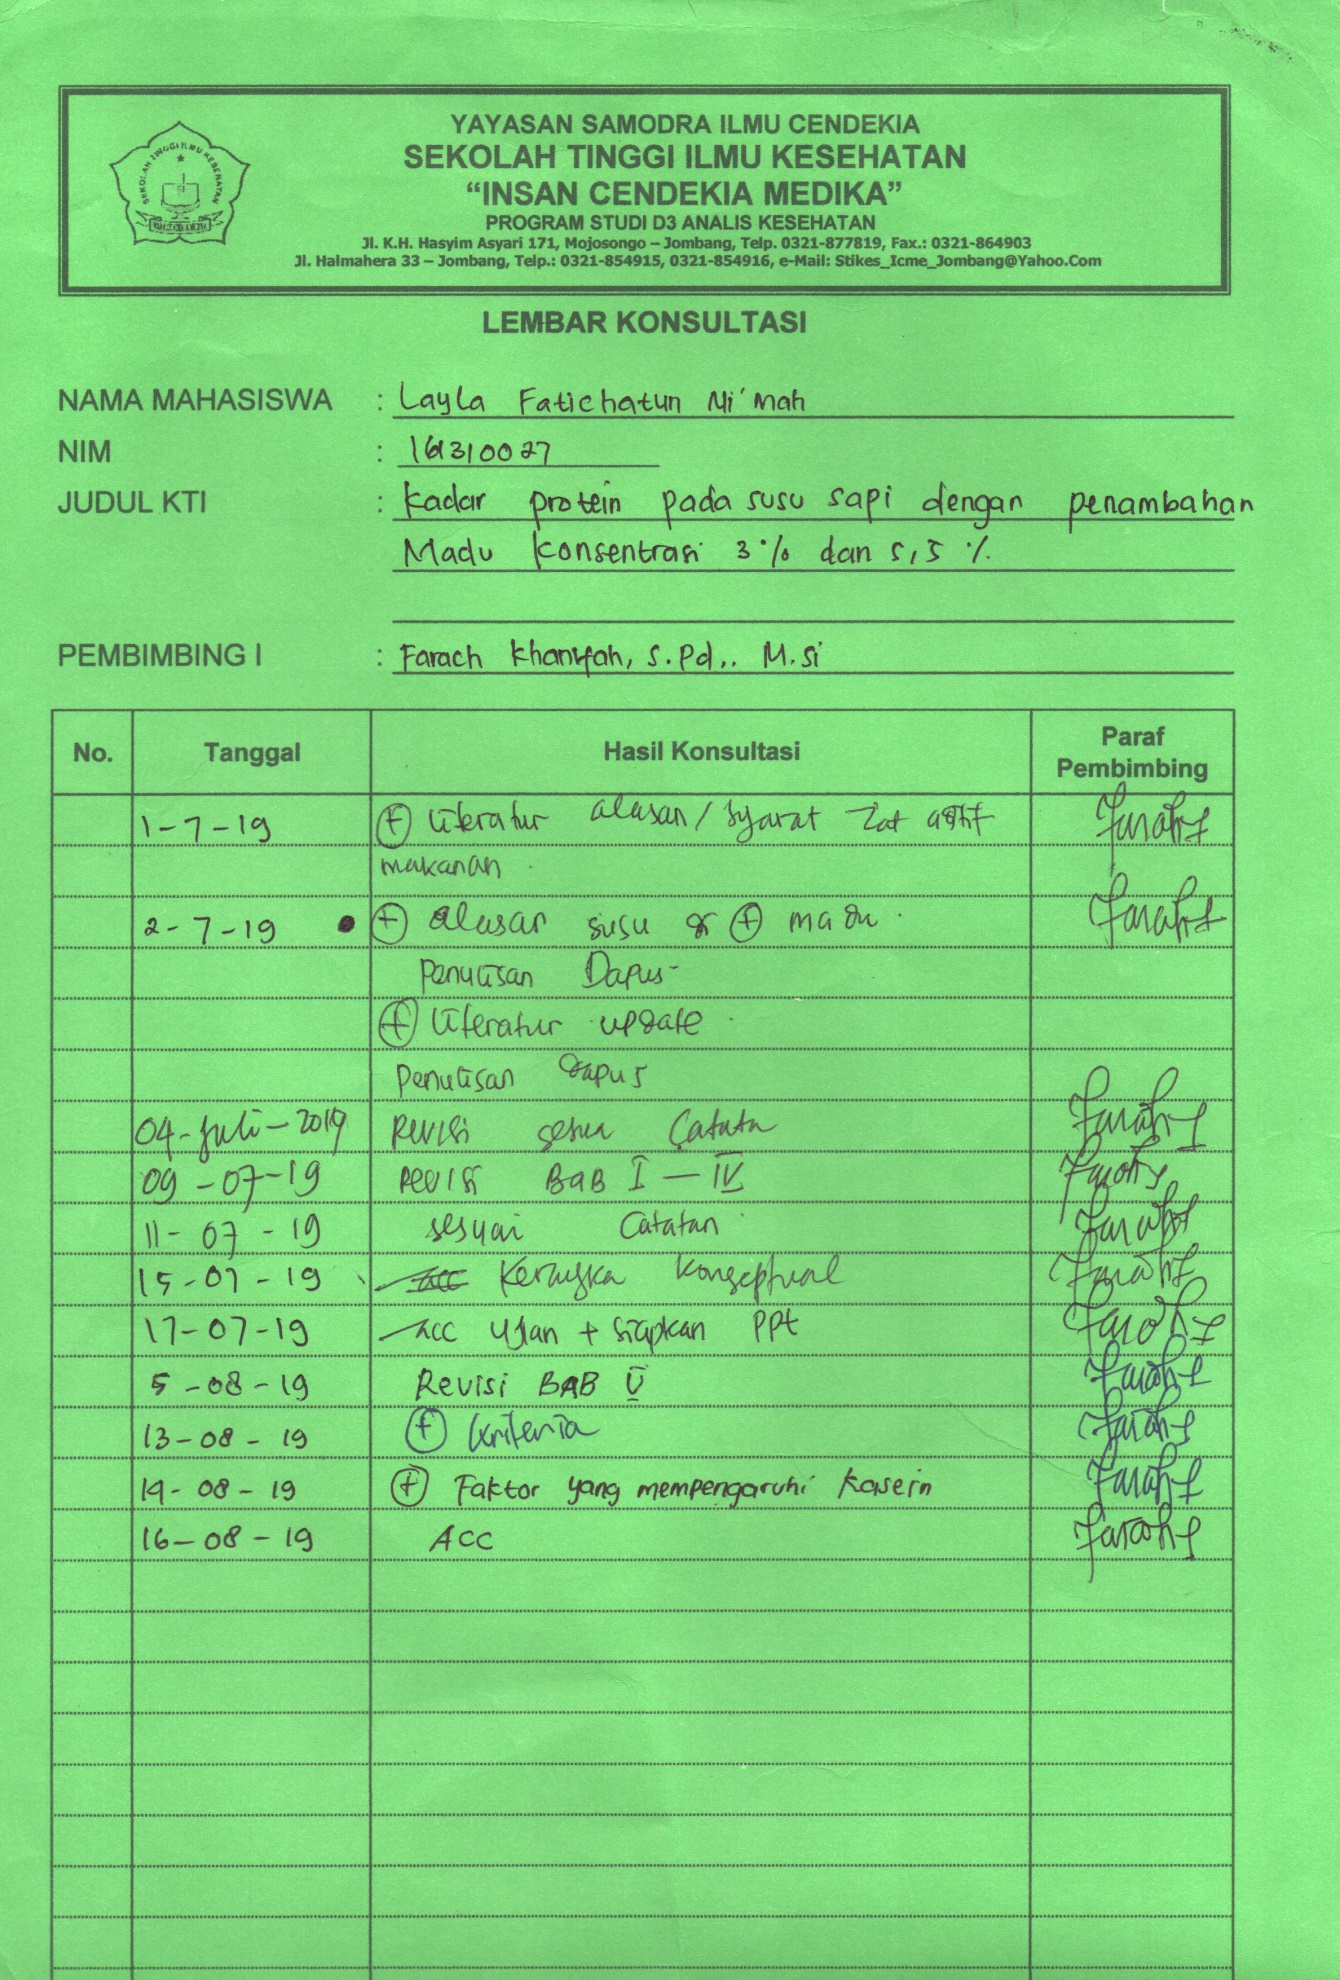 YAYASAN SAMODRA ILMU CENDEKIA
SEKOLAH TINGGI ILMU KESEHATAN
“INSAN CENDEKIA MEDIKA”
PROGRAM STUDI D3 ANALIS KESEHATAN
Jl. K.H. Hasyim Asyari 171, Mojosongo – Jombang, Telp. 0321-877819, Fax.: 0321-864903
Jl. Halmahera 33 – Jombang, Telp.: 0321-854915, 0321-854916, e-Mail: Stikes_Icme_Jombang@Yahoo.Com
SEKOLAH TINGGI ILMU KESEHATAN
LEMBAR KONSULTASI
NAMA MAHASISWA : Layla Fatichatun Ni'mah
NIM : 161310027
JUDUL KTI : Kadar protein pada susu sapi dengan penambahan
Madu Konsentrasi 3 % dan 5,5 %
PEMBIMBING I : Farach Khanifah, S.Pd., M.Si
No. Tanggal Hasil Konsultasi Paraf Pembimbing
1-7-19 (+) literatur alasan/syarat zat aditif
makanan
2-7-19 (+) alasan susu (+) madu
Penulisan Dapus
(+) literatur update
Penulisan dapus
04-Juli-2019 Revisi sesuai Catatan
09-07-19 Revisi BAB I - IV
11-07-19 sesuai Catatan
15-07-19 Acc Kerangka Konseptual
17-07-19 Acc Ujian + siapkan PPt
5-08-19 Revisi BAB V
13-08-19 (+) Kriteria
14-08-19 (+) Faktor yang mempengaruhi Kasein
16-08-19 ACC